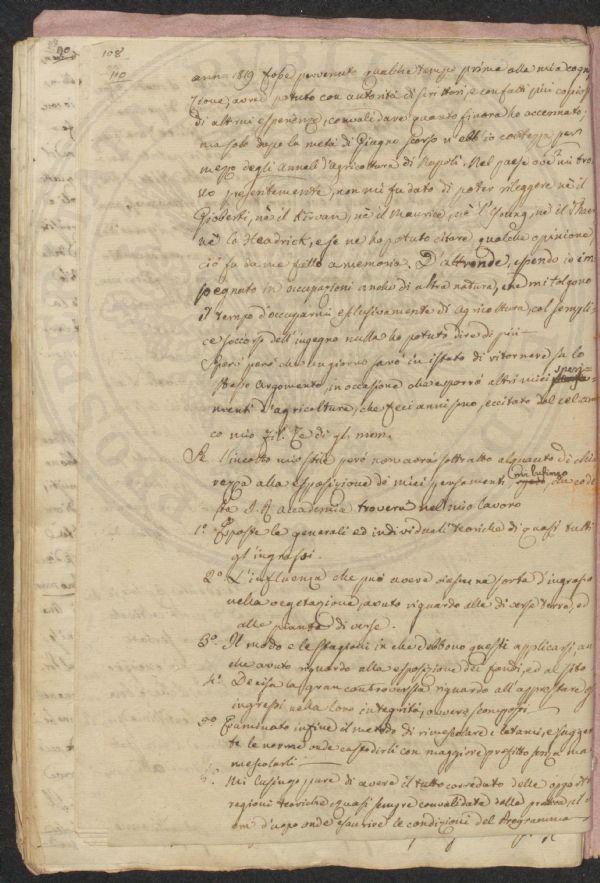 108
110
anno 1819 fosse pervenuto qualche tempo prima alla mia cogni
zione, avrei potuto con autorità di scrittori, e con fatti più copiosi
di altrui esperienze, convalidare quanto finora ho accennato;
ma solo dopo la metà di Giugno scorso n'ebbi io contezza per
mezzo degli Annali d'agricoltura di Napoli. Nel paese ove mi tro
vo presentemente, non mi fu dato di poter rileggere nè il
Gioberti, nè il Kirvan, nè il Maurice, nè l'Young, nè il Thaer
nè lo Headrick, e se ne ho potuto citare qualche opinione,
ciò fu da me fatto a memoria. D'altronde, essendo io im
pegnato in occupazioni anche di altra natura, che mi tolgono
il tempo d'occuparmi esclusivamente di agricoltura, col sempli
ce soccorso dell'ingegno nulla ho potuto dire di più
Spero però che un giorno sarò in istato di ritornare su lo
stesso argomento, in occasione che esporrò altri miei speri=
menti d'agricoltura, che feci anni sono, eccitato dal
co mio di gl. mem.
Se l'incolto mio stile però non avrà sottratto alquanto di chia
rezza alla esposizione de miei pensamenti, mi lusingo che code
sta I. R. Accademia troverà nel mio lavoro
1.° Esposte le generali ed individuali teoriche di quasi tutti
gl'ingrassi.
2.° L'influenza che può avere ciascuna sorta d'ingrasso
nella vegetazione, avuto riguardo alle diverse terre, ed
alle piante diverse.
3.° Il modo e le stagioni in che debbono questi applicarsi, an
che avuto riguardo alla esposizione dei fondi, ed al sito
4.° Decisa la gran controversia riguardo all'apprestare gl'
ingrassi nella loro integrità, ovvero scomposti
5.° Esaminato infine il metodo di rimescolare i letami, e sugger
te le norme onde custodirli con maggiore profitto senza ri
mescolarli
6.° Mi lusingo pure di avere il tutto corredato delle opportune
ragioni teoriche, quasi sempre convalidate dalla pratica, il
em d'uopo onde esaurire le condizioni del Programma